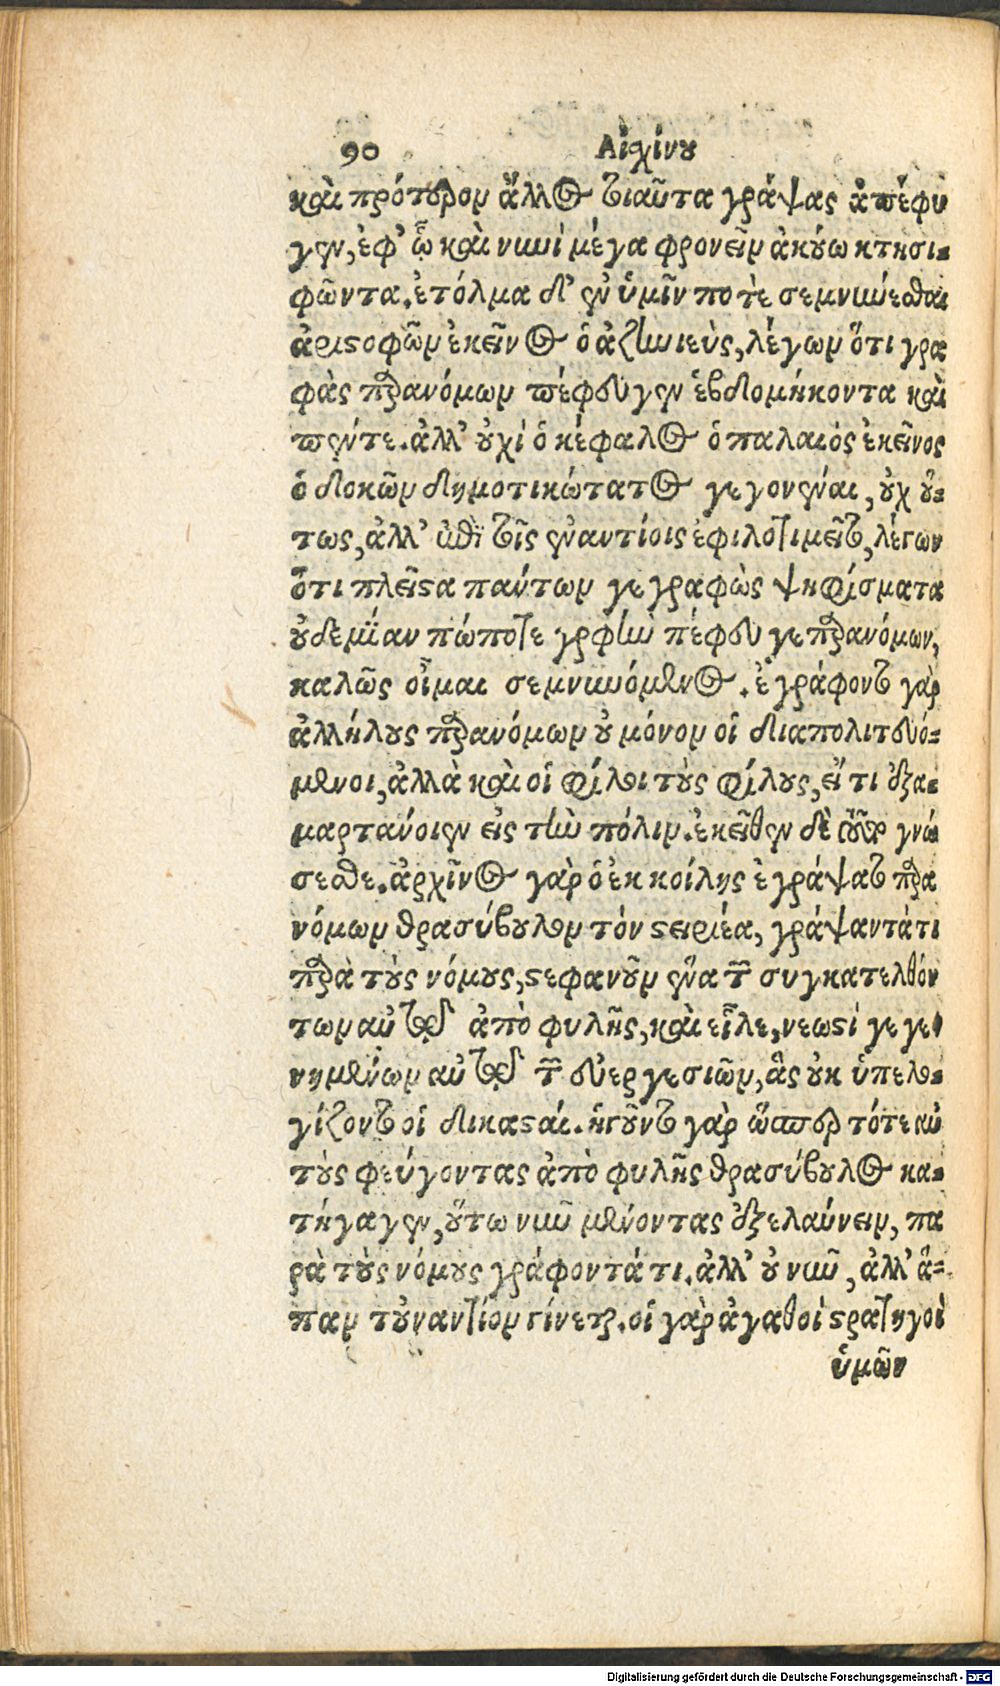 90 Αἰχίνου
καὶ πρότερον ἄλλος τοιαῦτα γράψας ἀπέφυ
γεν, ἐφ' ᾧ καὶ νυνὶ μέγα φρονεῖν ἀκούω κτησι-
φῶντα. ἐτόλμα δ' ἐν ὑμῖν ποτὲ σεμνύνεσθαι
ἀριστοφῶν ἐκεῖνος ὁ ἀζηνιεὺς, λέγων ὅτι γρα
φὰς παρανόμων πέφευγεν ἑβδομήκοντα καὶ
πέντε. ἀλλ' οὐχὶ ὁ κέφαλος ὁ παλαιός ἐκεῖνος
ὁ δοκῶν δημοτικώτατος γεγονέναι, οὐχ οὕ-
τως, ἀλλ' ἐπὶ τοῖς ἐναντίοις ἐφιλοτιμεῖτο, λέγων
ὅτι πλεῖστα πάντων γεγραφὼς ψηφίσματα
οὐδεμίαν πώποτε γραφὴν πέφευγε παρανόμων,
καλῶς οἶμαι σεμνυνόμενος. ἐγράφοντο γὰρ
ἀλλήλους παρανόμων οὐ μόνον οἱ διαπολιτευό-
μενοι, ἀλλὰ καὶ οἱ φίλοι τοὺς φίλους, εἴ τι ἐξα-
μαρτάνοιεν εἰς τὴν πόλιν. ἐκεῖθεν δὲ τοῦτο γνώ
σεσθε. ἀρχῖνος γὰρ ὁ ἐκ κοίλης ἐγράψατο παρα
νόμων θρασύβουλον τὸν στειριέα, γράψαντά τι
παρὰ τοὺς νόμους, στεφανοῦν ἕνα τῶν συγκατελθόν
των αὐτῷ ἀπὸ φυλῆς, καὶ εἷλε, νεωστί γεγε
νημένων αὐτῷ τῶν εὐεργεσιῶν, ἃς οὐκ ὑπελο-
γίζοντο οἱ δικασταί. ἡγοῦντο γὰρ ὥσπερ τότε αὐ
τοὺς φεύγοντας ἀπὸ φυλῆς θρασύβουλος κα-
τήγαγεν, οὕτω νῦν μένοντας ἐξελαύνειν, πα
ρὰ τοὺς νόμους γράφοντά τι. ἀλλ' οὐ νῦν, ἀλλ' ἅ-
παν τοὐναντίον γίνεται. οἱ γὰρ ἀγαθοὶ στρατηγοὶ
ὑμῶν
Digitalisierung gefördert durch die Deutsche Forschungsgemeinschaft - DFG